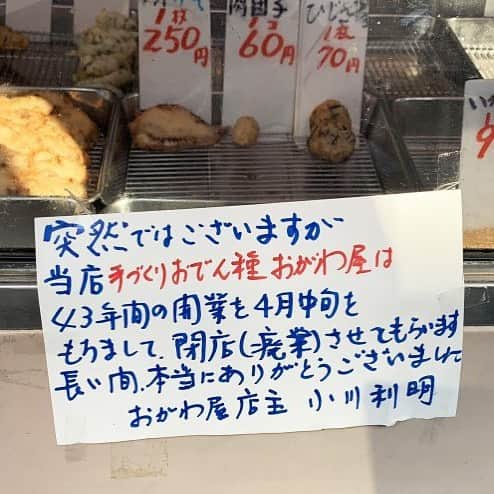 1枚
250円
肉団子
1コ
60円
1枚
70円
突然ではございますが
当店手づくりおでん種 おがわ屋は
43年間の開業を4月中旬を
もちまして、閉店(廃業)させてもらいます
長い間、本当にありがとうございました
おがわ屋店主 小川利明